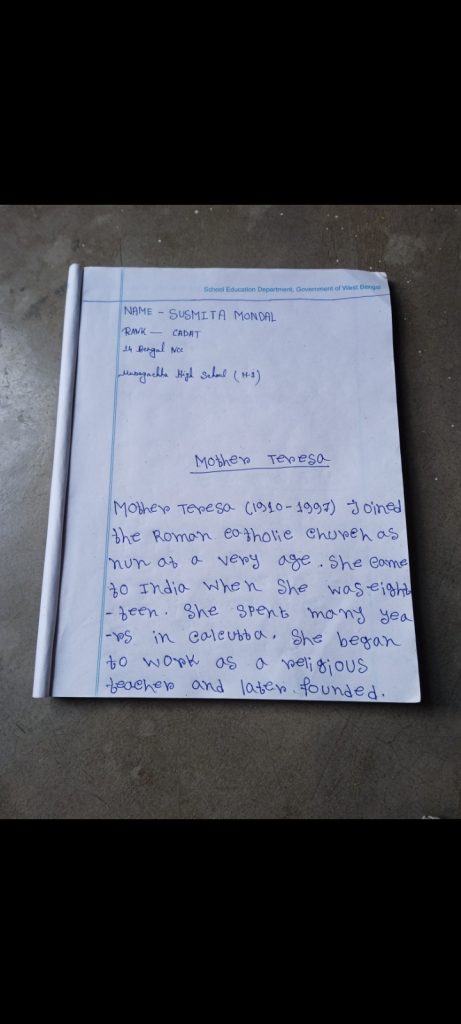 School Education Department, Government of West Bengal
NAME - SUSMITA MONDAL
RANK - CADAT
14 Bengal NCC
High School (H.S)
Mother Teresa
Mother Teresa (1910-1997) Joined
the Roman catholic church as
nun at a very age. She came
to India when she was eight
-teen. She spent many yea
-rs in calcutta. She began
to work as a religious
teacher and later founded.